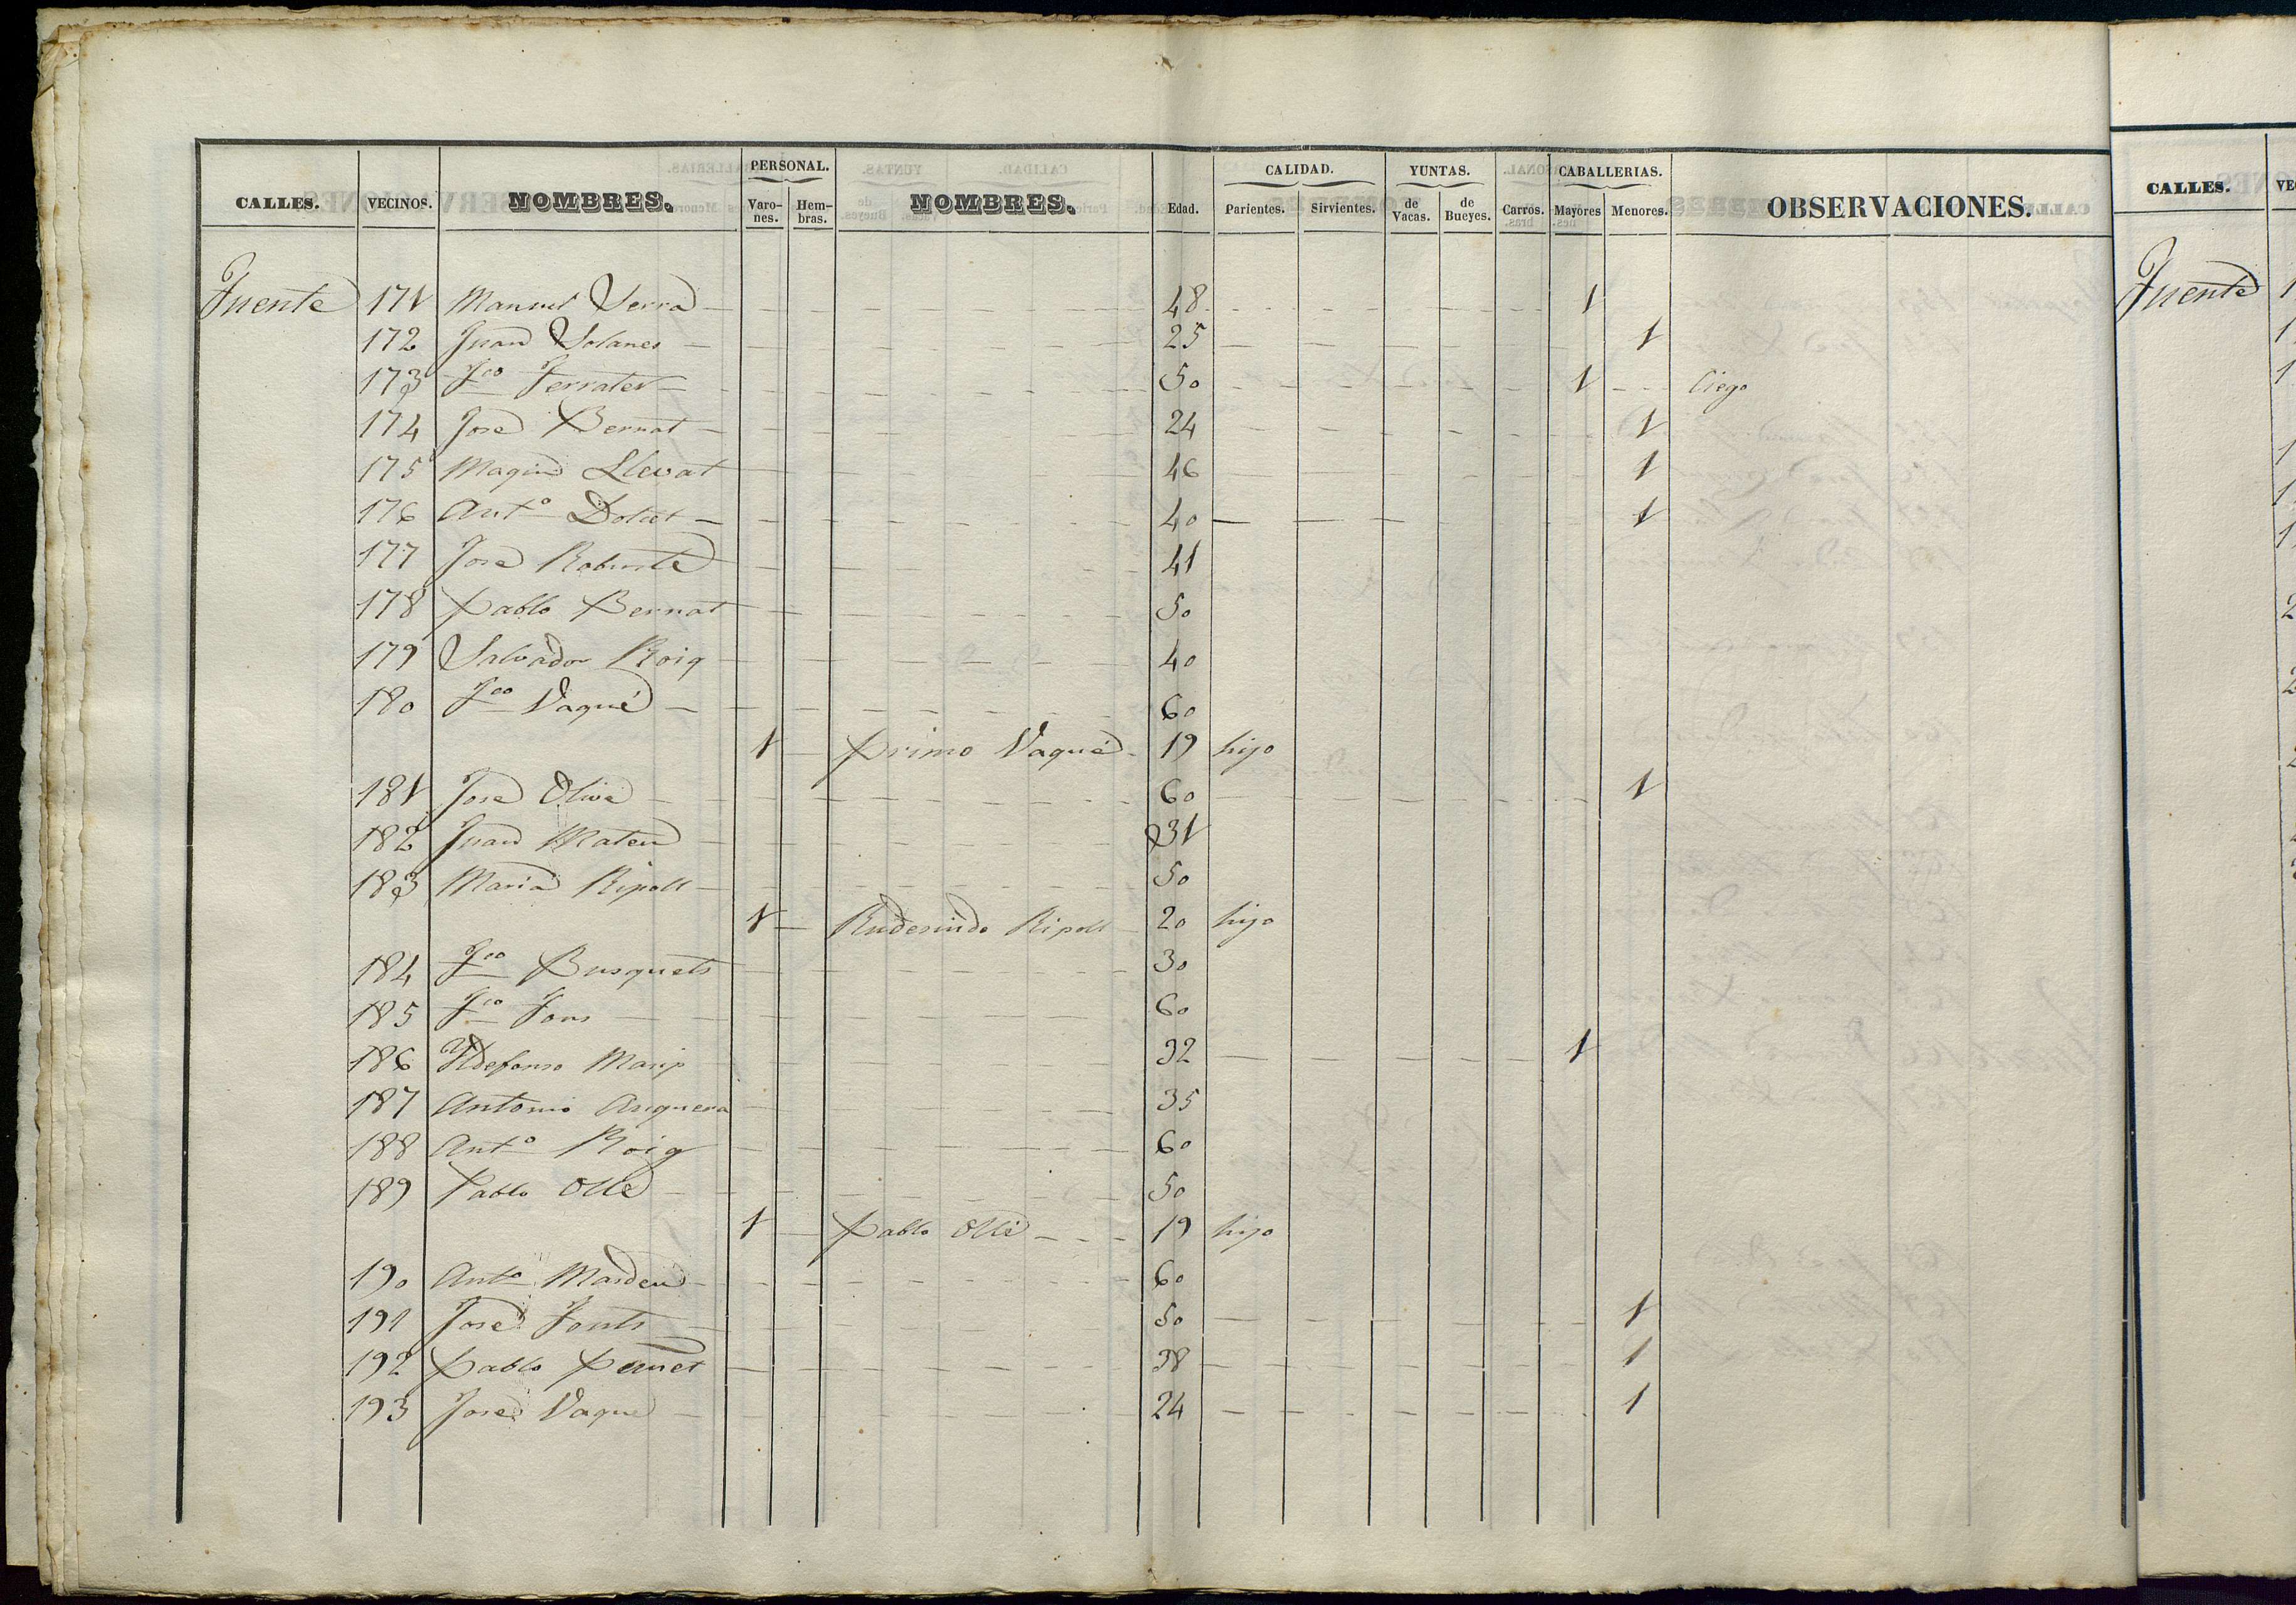 CALLES. VECINOS. NOMBRES. PERSONAL. Varones. Hembras. NOMBRES. Edad. CALIDAD. Parientes. Sirvientes. YUNTAS. de Vacas. de Bueyes. Carros. CABALLERIAS. Mayores Menores. OBSERVACIONES.
Fuente 171 Manuel Serra 48 1
172 Juan Solanes 25 1
173 Fco Ferrater 50 1 Ciego
174 José Bernat 24 1
175 Magin Llevat 46 1
176 Anto 40 1
177 José Robusté 41
178 Pablo Bernat 50
179 Salvador Roig 40
180 Fco Vaqué 60
1 Primo Vaqué 19 hijo
181 José Olivé 60 1
182 Juan Mateu 31
183 Maria Ripoll 50
1 Rudesindo Ripoll 20 hijo
184 Fco Busquets 30
185 Fco Fons 60
186 Ildefonso Masip 32 1
187 Antonio Anguera 35
188 Anto Roig 60
189 Pablo Ollé 50
1 Pablo Ollé 19 hijo
190 Anto Masdeu 60
191 José Fonts 50 1
192 Pablo 38 1
193 José Vaqué 24 1
CALLES.
Fuente